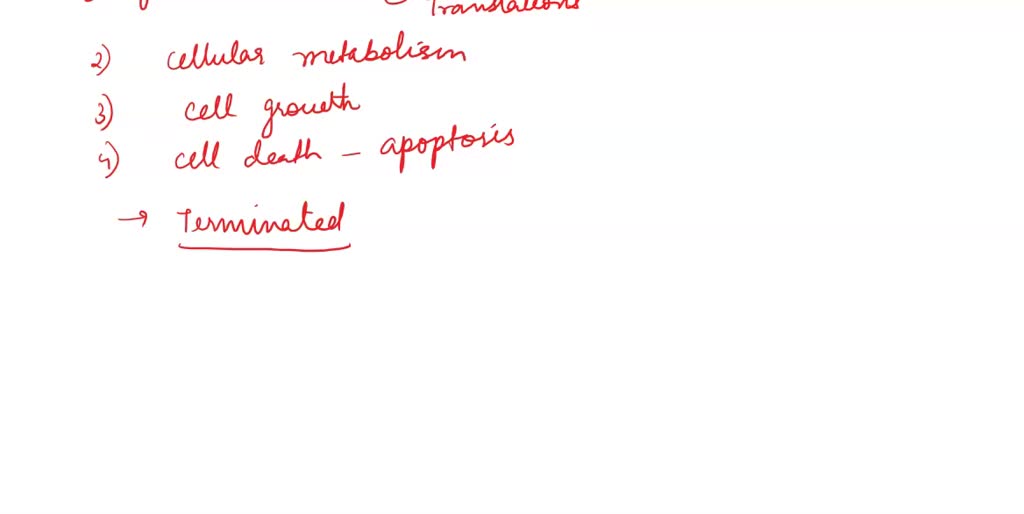 Translations
2) cellular metabolism
3) cell growth
4) cell death - apoptosis
→ Terminated